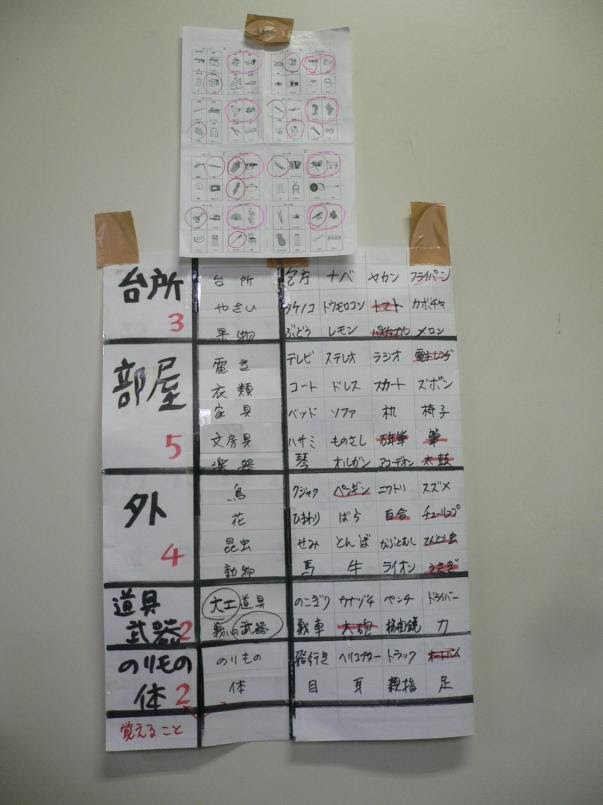 台所 3
台所 包丁 ナベ ヤカン フライパン
やさい タケノコ トウモロコシ トマト カボチャ
果物 ぶどう レモン メロン
部屋 5
電き テレビ ステレオ ラジオ 電子レンジ
衣類 コート ドレス スカート ズボン
家具 ベッド ソファ 机 椅子
文房具 ハサミ ものさし 万年筆 筆
楽器 琴 オルガン アコーデオン 太鼓
外 4
鳥 クジャク ペンギン ニワトリ スズメ
花 ひまわり ばら 百合 チューリップ
昆虫 せみ とんぼ かぶとむし てんとう虫
動物 馬 牛 ライオン うさぎ
道具 武器 2
大工道具 のこぎり カナヅチ ペンチ ドライバー
戦いの武器 戦車 大砲 機関銃 刀
のりもの 体 2
のりもの 飛行き ヘリコプター トラック オートバイ
体 目 耳 親指 足
覚えること